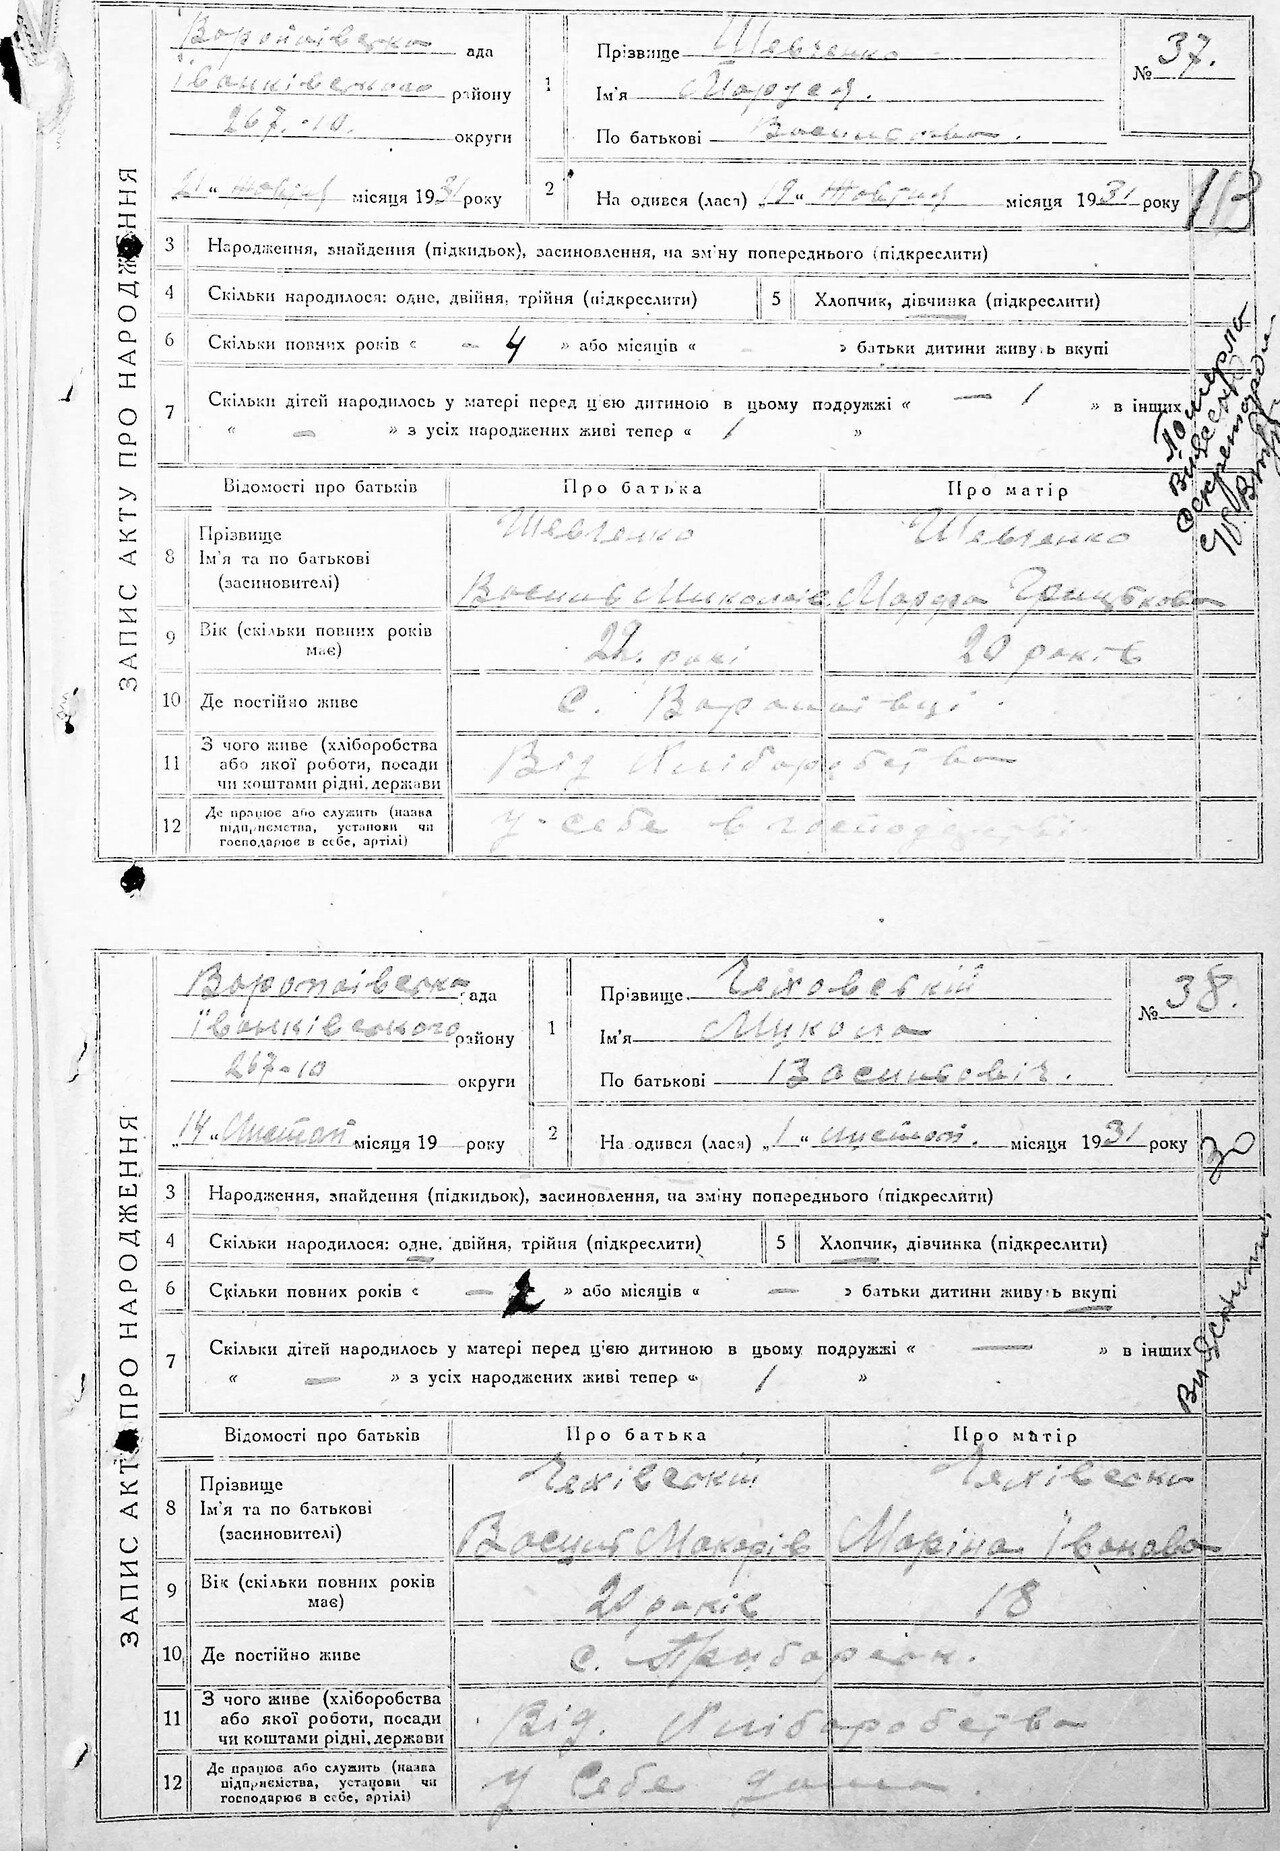 ЗАПИС АКТУ ПРО НАРОДЖЕННЯ
Воропаівська ада
Іванківського району
267.-10. округи
21 " жовтня місяця 1931 року
1 Прізвище Шевченко
Ім'я
По батькові Василівна.
№ 37.
2 На одився (лася) „19 " жовтня місяця 1931 року
3 Народження, знайдення (підкидьок), засиновлення, на зміну попереднього (підкреслити)
4 Скільки народилося: одне, двійня, трійня (підкреслити) 5 Хлопчик, дівчинка (підкреслити)
6 Скільки повних років « – 4 » або місяців « – » батьки дитини живуть вкупі
7 Скільки дітей народилось у матері перед цією дитиною в цьому подружжі « — 1 » в інших
« – » з усіх народжених живі тепер « 1 »
Відомості про батьків Про батька Про матір
8 Прізвище
Ім'я та по батькові
(засиновителі)
Шевченко Шевченко
Василь Миколаїв Марфа Грицькова
9 Вік (скільки повних років
має)
22. рокі 20 років
10 Де постійно живе с. Воропаівці
11 З чого живе (хліборобства
або якої роботи, посади
чи коштами рідні, держави
Від Хліборобства
12 Де працює або служить (назва
підприємства, установи чи
господарює в себе, артілі)
У себе в господарстві
Померла
секретар
ЗАПИС АКТ ПРО НАРОДЖЕННЯ
Воропаівська ада
Іванківського району
267-10 округи
„14 " Листоп місяця 19 року
1 Прізвище Чеховській
Ім'я Микола
По батькові Васильовіч.
№ 38.
2 На одився (лася) „1 " листоп. місяця 1931 року
30
3 Народження, знайдення (підкидьок), засиновлення, на зміну попереднього (підкреслити)
4 Скільки народилося: одне, двійня, трійня (підкреслити) 5 Хлопчик, дівчинка (підкреслити)
6 Скільки повних років « – » або місяців « – » батьки дитини живуть вкупі
7 Скільки дітей народилось у матері перед цією дитиною в цьому подружжі « — » в інших
« — » з усіх народжених живі тепер « 1 »
Відомості про батьків Про батька Про матір
8 Прізвище
Ім'я та по батькові
(засиновителі)
Чехівській Чехівська
Василь Макарів Маріна Іванова
9 Вік (скільки повних років
має)
20 років 18
10 Де постійно живе с. Приборськ.
11 З чого живе (хліборобства
або якої роботи, посади
чи коштами рідні, держави
Від. Хліборобства
12 Де працює або служить (назва
підприємства, установи чи
господарює в себе, артілі)
У себе дома